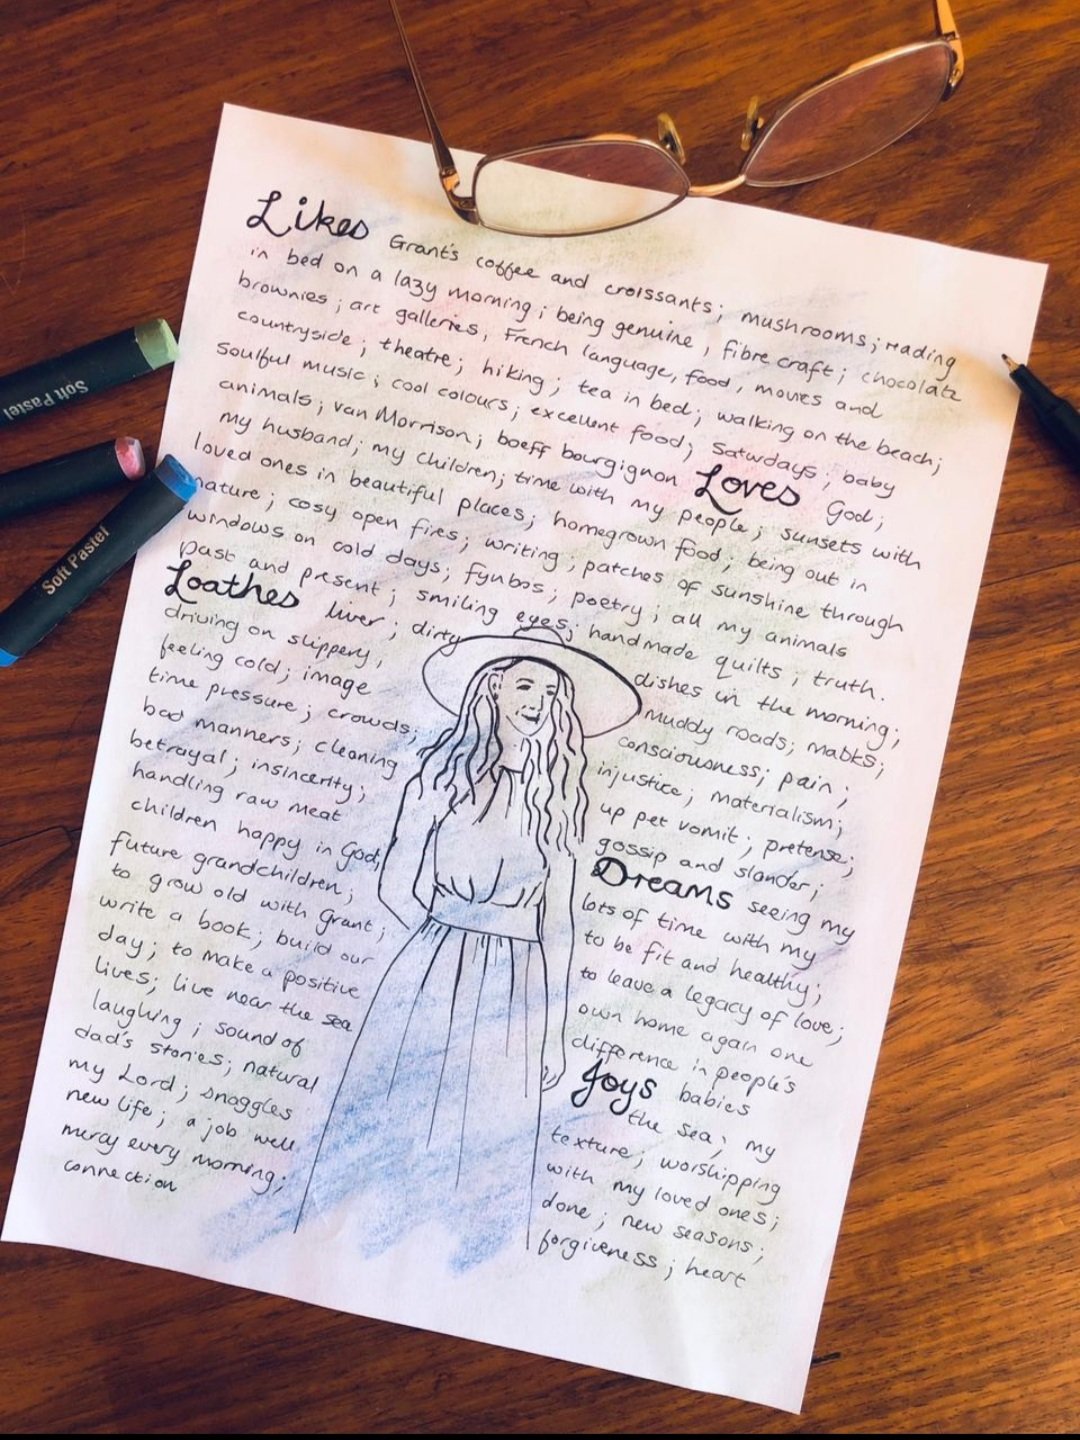 Likes Grant's coffee and croissants; mushrooms; reading
in bed on a lazy morning; being genuine, fibre craft; chocolate
brownies; art galleries, French language, food, movies and
countryside; theatre; hiking; tea in bed; walking on the beach;
soulful music; cool colours; excellent food; Saturdays; baby
animals; van Morrison; boeff bourgignon Loves God;
my husband; my children; time with my people; sunsets with
loved ones in beautiful places; homegrown food; being out in
nature; cosy open fires; writing; patches of sunshine through
windows on cold days; fynbos; poetry; all my animals
past and present; smiling eyes; handmade quilts; truth.
Loathes liver; dirty dishes in the morning;
driving on slippery, muddy roads; masks;
feeling cold; image consciousness; pain;
time pressure; crowds; injustice; materialism;
bad manners; cleaning up pet vomit; pretense;
betrayal; insincerity; gossip and slander;
handling raw meat Dreams seeing my
children happy in God; lots of time with my
future grandchildren; to be fit and healthy;
to grow old with Grant; to leave a legacy of love;
write a book; build our own home again one
day; to make a positive difference in people's
lives; live near the sea Joys babies
laughing; sound of the sea; my
dad's stories; natural texture; worshipping
my Lord; snaggles with my loved ones;
new life; a job well done; new seasons;
mercy every morning; forgiveness; heart
connection
Soft Pastel
Soft Pastel